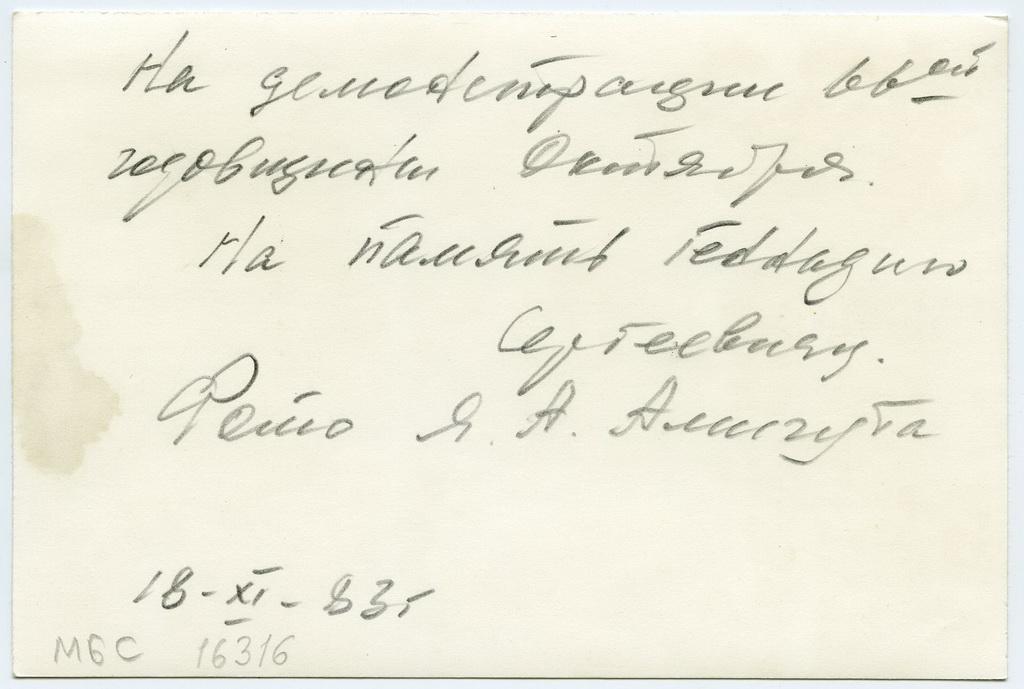 На демонстрации 66ой
годовщины Октября.
На память Геннадию
Сергеевичу.
Фото Я. А.
18-XI-83г
МБС 16316